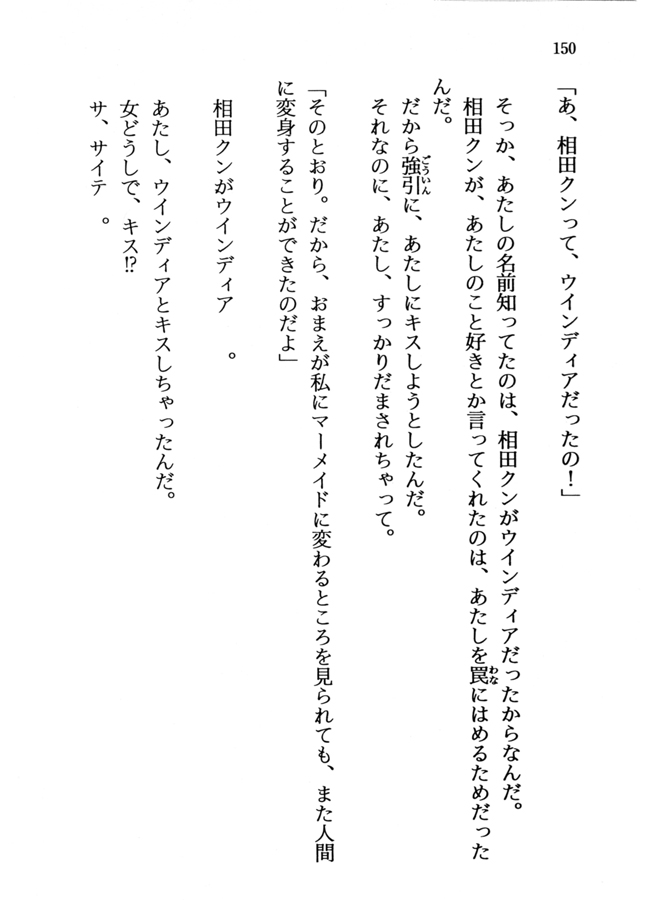 150
「あ、相田クンって、ウインディアだったの！」
そっか、あたしの名前知ってたのは、相田クンがウインディアだったからなんだ。
相田クンが、あたしのこと好きとか言ってくれたのは、あたしを罠にはめるためだった
んだ。
だから強引に、あたしにキスしようとしたんだ。
それなのに、あたし、すっかりだまされちゃって。
「そのとおり。だから、おまえが私にマーメイドに変わるところを見られても、また人間
に変身することができたのだよ」
相田クンがウインディア　　。
あたし、ウインディアとキスしちゃったんだ。
女どうしで、キス!?
サ、サイテ　。